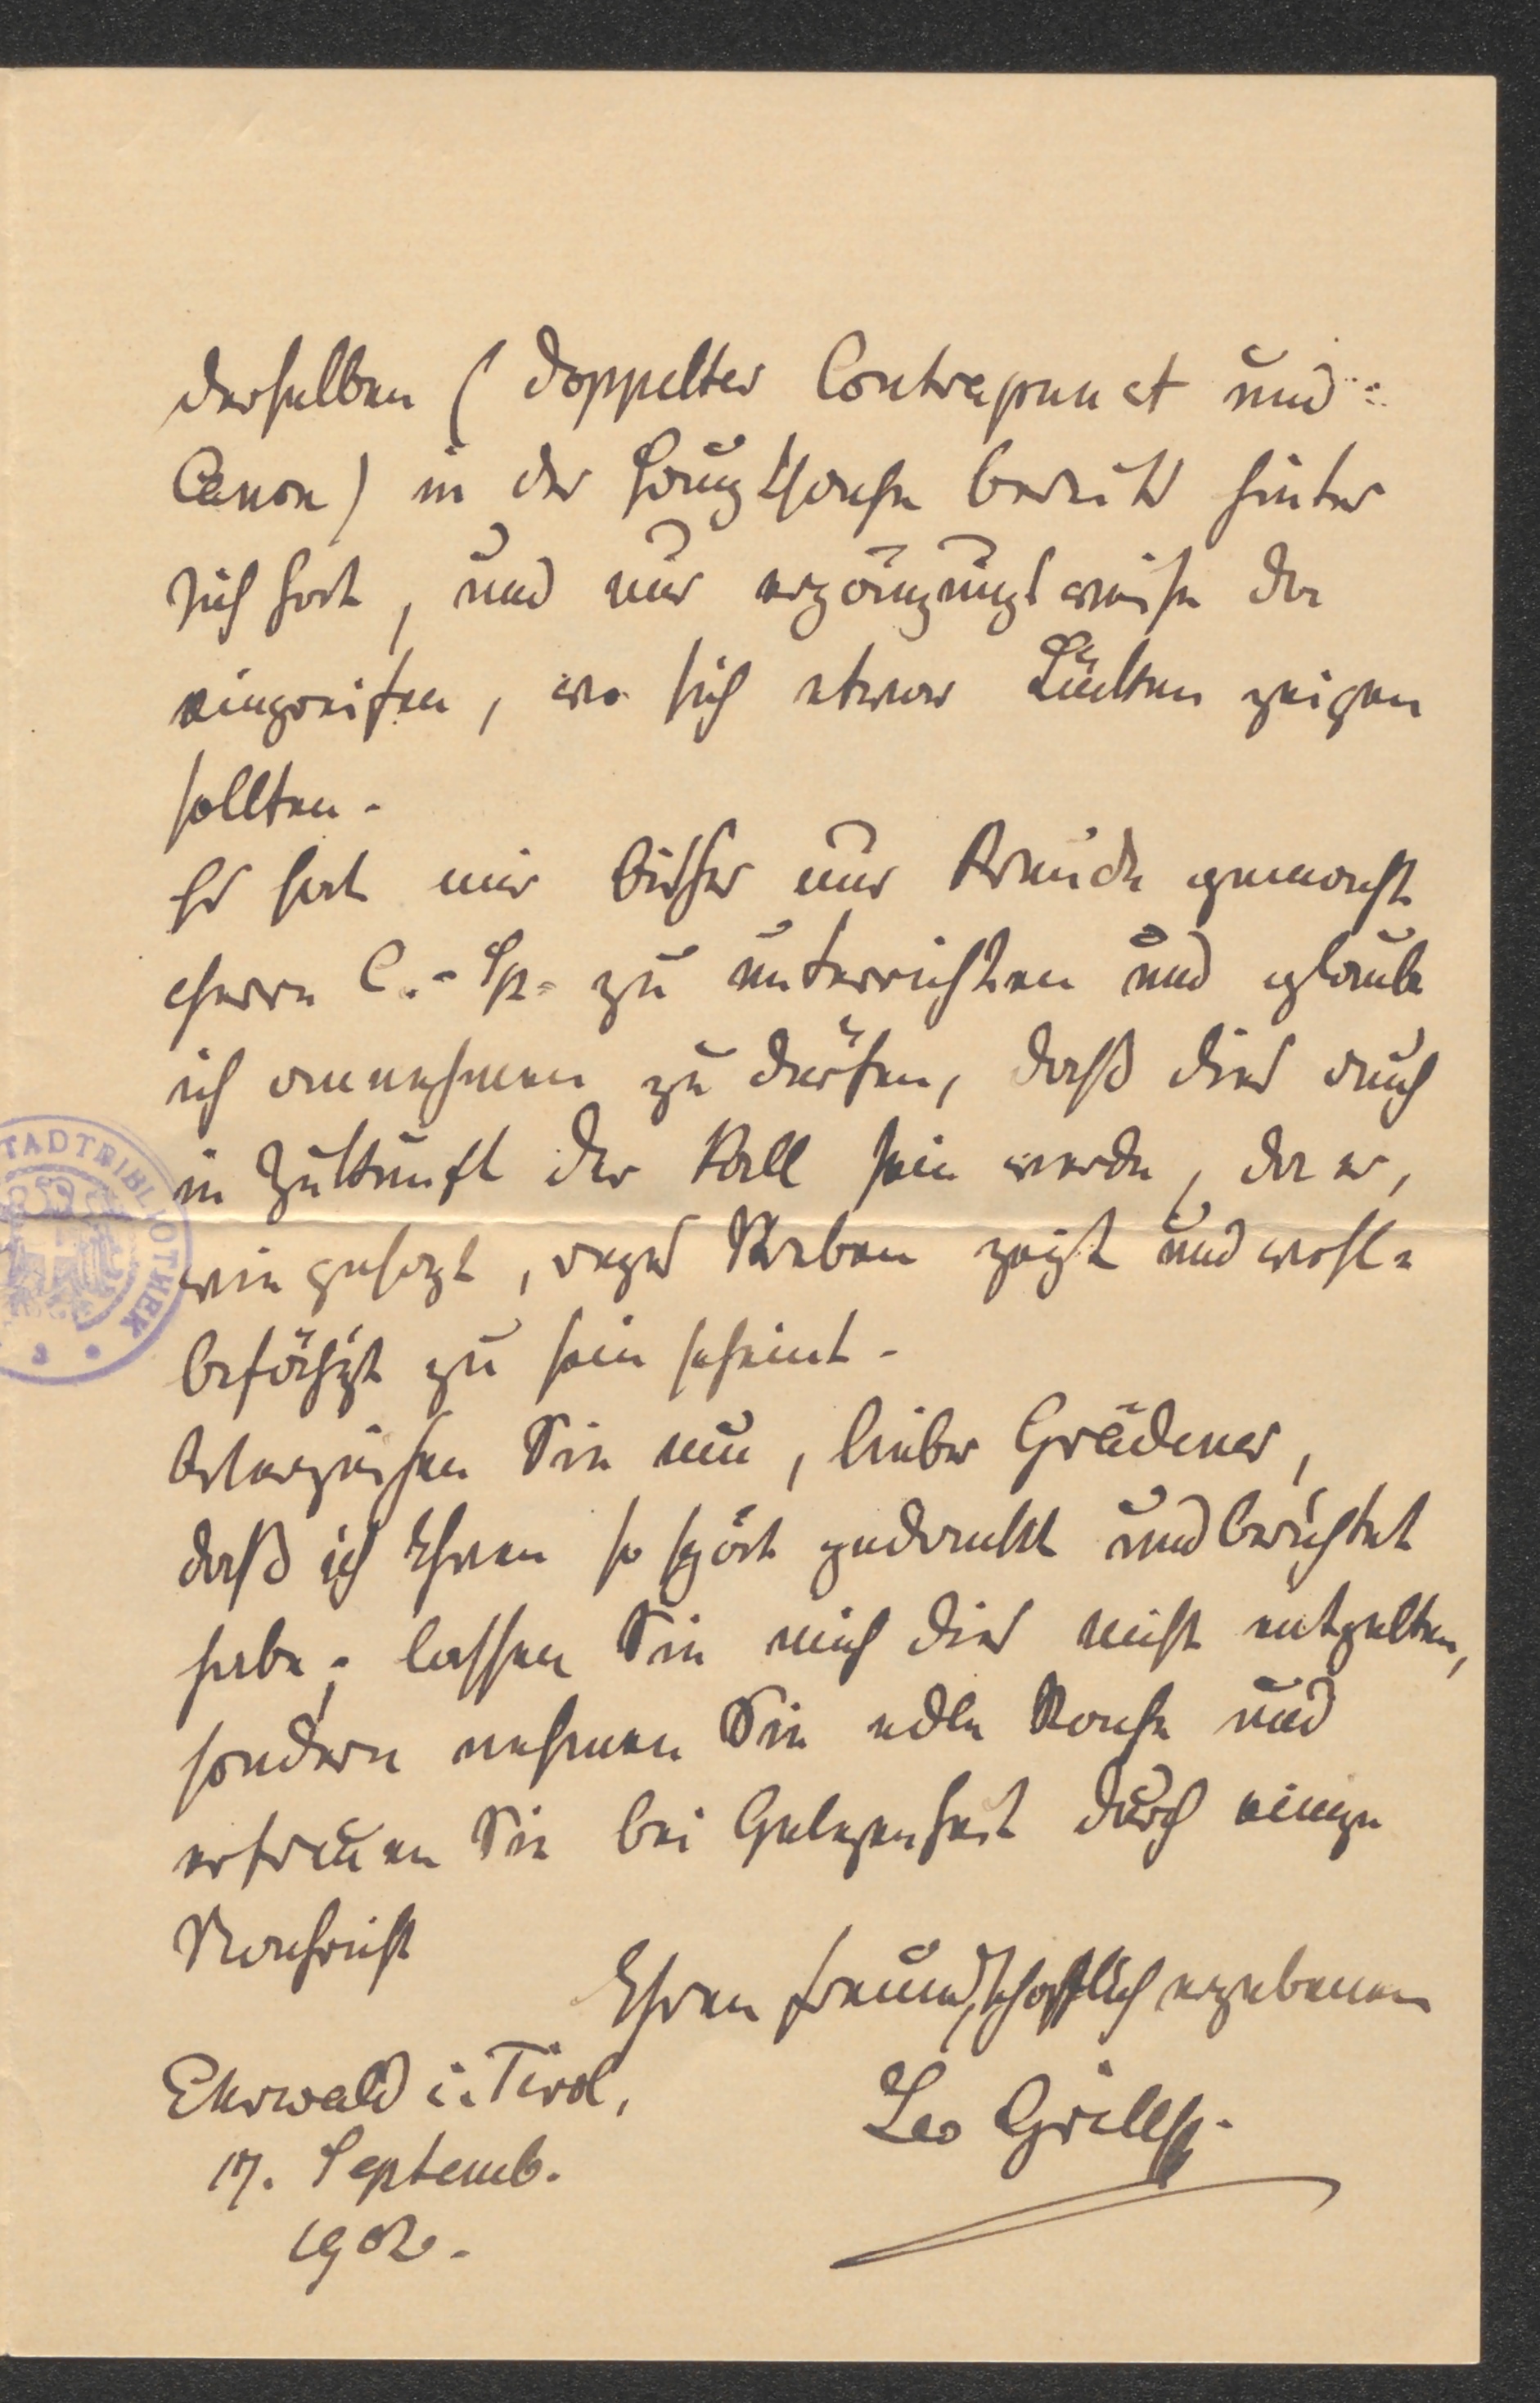 derselben (doppelter Contrapunct und
Canon) in der Hauptsache bereits hinter
sich hat, und nur ergänzungsweise da
eingreifen, wo sich etwa Lücken zeigen
sollten.
Es hat mir bisher nur Freude gemacht
Herrn C.-Sp. zu unterrichten und glaube
ich annehmen zu dürfen, daß dies auch
in Zukunft der Fall sein werde, da er,
wie gesagt, reges Streben zeigt und wohl-
befähigt zu sein scheint.
Verzeihen Sie nun, lieber Grädener,
daß ich Ihnen so spät gedankt und berichtet
habe; lassen Sie mich dies nicht entgelten,
sondern nehmen Sie edle Rache und
erfreuen Sie bei Gelegenheit durch einige
Nachricht
Ihren freundschaftlich ergebenen
Leo Grill
Ehrwald i. Tirol,
17. Septemb.
1902.
STADTBIBLIOTHEK